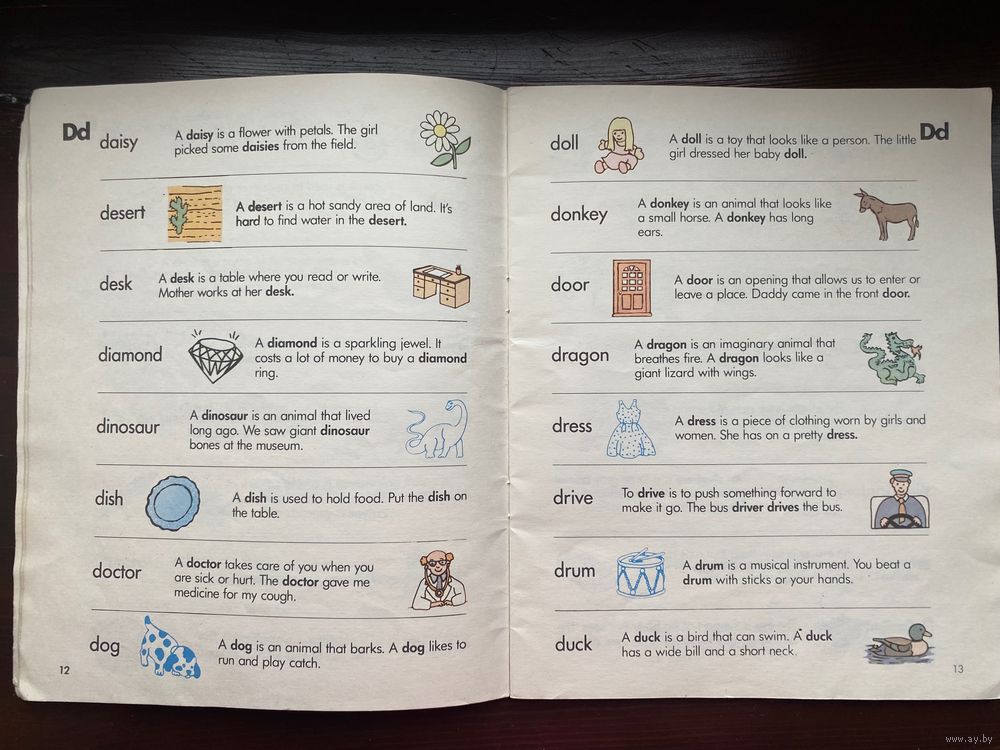 Dd
daisy
A daisy is a flower with petals. The girl
picked some daisies from the field.
desert
A desert is a hot sandy area of land. It's
hard to find water in the desert.
desk
A desk is a table where you read or write.
Mother works at her desk.
diamond
A diamond is a sparkling jewel. It
costs a lot of money to buy a diamond
ring.
dinosaur
A dinosaur is an animal that lived
long ago. We saw giant dinosaur
bones at the museum.
dish
A dish is used to hold food. Put the dish on
the table.
doctor
A doctor takes care of you when you
are sick or hurt. The doctor gave me
medicine for my cough.
dog
A dog is an animal that barks. A dog likes to
run and play catch.
12
Dd
doll
A doll is a toy that looks like a person. The little
girl dressed her baby doll.
donkey
A donkey is an animal that looks like
a small horse. A donkey has long
ears.
door
A door is an opening that allows us to enter or
leave a place. Daddy came in the front door.
dragon
A dragon is an imaginary animal that
breathes fire. A dragon looks like a
giant lizard with wings.
dress
A dress is a piece of clothing worn by girls and
women. She has on a pretty dress.
drive
To drive is to push something forward to
make it go. The bus driver drives the bus.
drum
A drum is a musical instrument. You beat a
drum with sticks or your hands.
duck
A duck is a bird that can swim. A duck
has a wide bill and a short neck.
13
www.ay.by